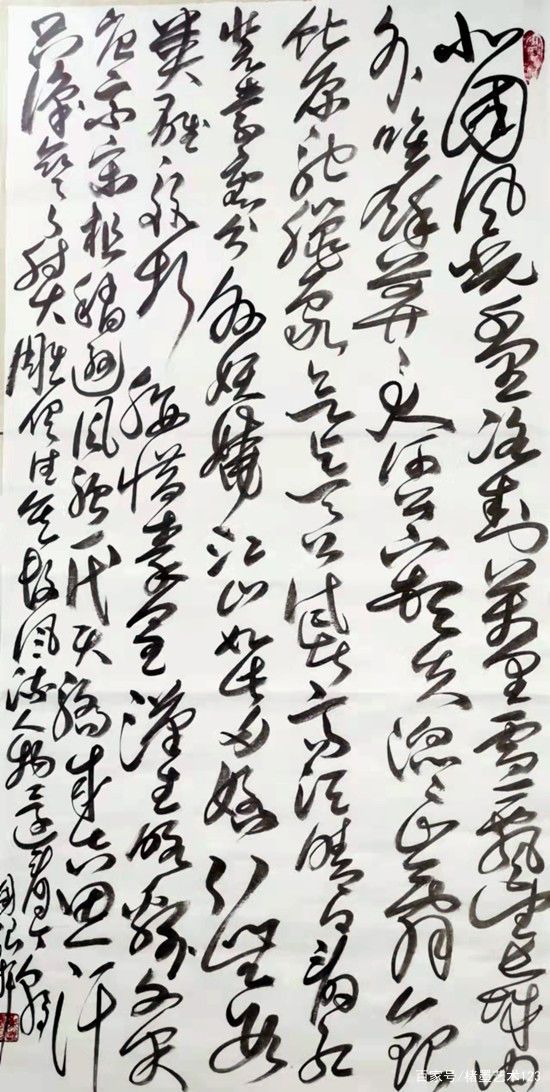 北国风光千里冰封萬里雪飘望长城内
外唯馀莽莽大河上下顿失滔滔山舞银
蛇原驰腊象欲与天公试比高须晴日看红
装素裹分外妖娆江山如此多娇引无数
英雄竞折腰惜秦皇汉武略输文采
唐宗宋祖稍逊风骚一代天骄成吉思汗
只识弯弓射大雕俱往矣数风流人物还看今朝
百家号/楮墨艺术123